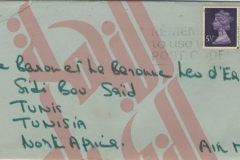 REMEMBER
TO USE
POST CODE
5½P
e Baron et Le Baronne Leo d'E
Sidi Bou Saïd
TUNIS
TUNISIA
North Africa.
AIR M